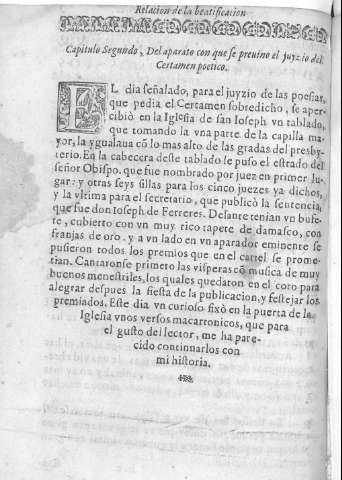 Relacion de la beatificacion
Capitulo Segundo, Del aparato con que se preuino el juyzio del
Certamen poetico.
EL dia señalado, para el juyzio de las poesias,
que pedia el Certamen sobredicho, se aper-
cibiò en la Iglesia de san Ioseph vn tablado,
que tomando la vna parte de la capilla ma-
yor, la ygualaua cõ lo mas alto de las gradas del presby-
terio. En la cabecera deste tablado se puso el estrado del
señor Obispo, que fue nombrado por juez en primer lu-
gar: y otras seys sillas para los cinco juezes ya dichos,
y la vltima para el secretario, que publicò la sentencia,
que fue don Ioseph de Ferreres. Delante tenian vn bufe-
te, cubierto con vn muy rico tapete de damasco, con
franjas de oro. y a vn lado en vn aparador eminente se
pusieron todos los premios que en el cartel se prome-
tian. Cantaronse primero las visperas cõ musica de muy
buenos menestriles, los quales quedaron en el coro para
alegrar despues la fiesta de la publicacion, y festejar los
premiados. Este dia vn curioso fixò en la puerta de la
Iglesia vnos versos macarronicos, que para
el gusto del lector, me ha pare-
cido continuarlos con
mi historia.